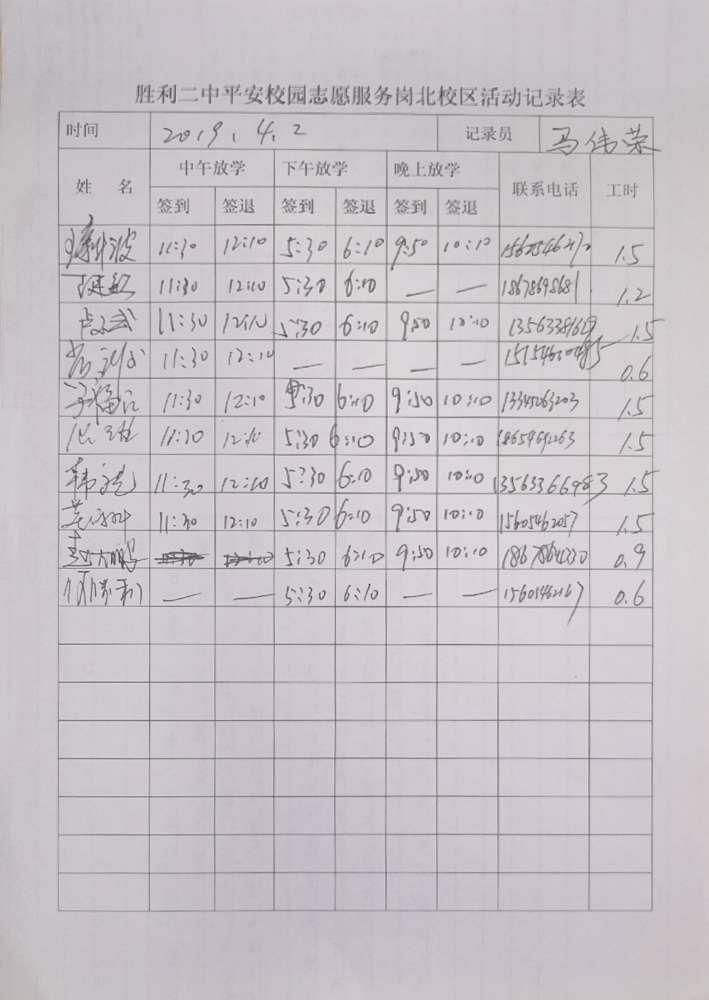 胜利二中平安校园志愿服务岗北校区活动记录表
时间 2019.4.2 记录员 马伟荣
姓 名 中午放学 下午放学 晚上放学 联系电话 工时
签到 签退 签到 签退 签到 签退
11:30 12:10 5:30 6:10 9:50 10:10 1.5
11:30 12:10 5:30 6:10 — — 18678698681 1.2
11:30 12:10 5:30 6:10 9:50 10:10 1.5
11:30 12:10 — — — — 0.6
11:30 12:10 5:30 6:10 9:50 10:10 13345263203 1.5
11:30 12:10 5:30 6:10 9:50 10:10 18659692263 1.5
11:30 12:10 5:30 6:10 9:50 10:10 13563366983 1.5
11:30 12:10 5:30 6:10 9:50 10:10 15605462057 1.5
5:30 6:10 9:50 10:10 18678641330 0.9
何胜利 — — 5:30 6:10 — — 0.6